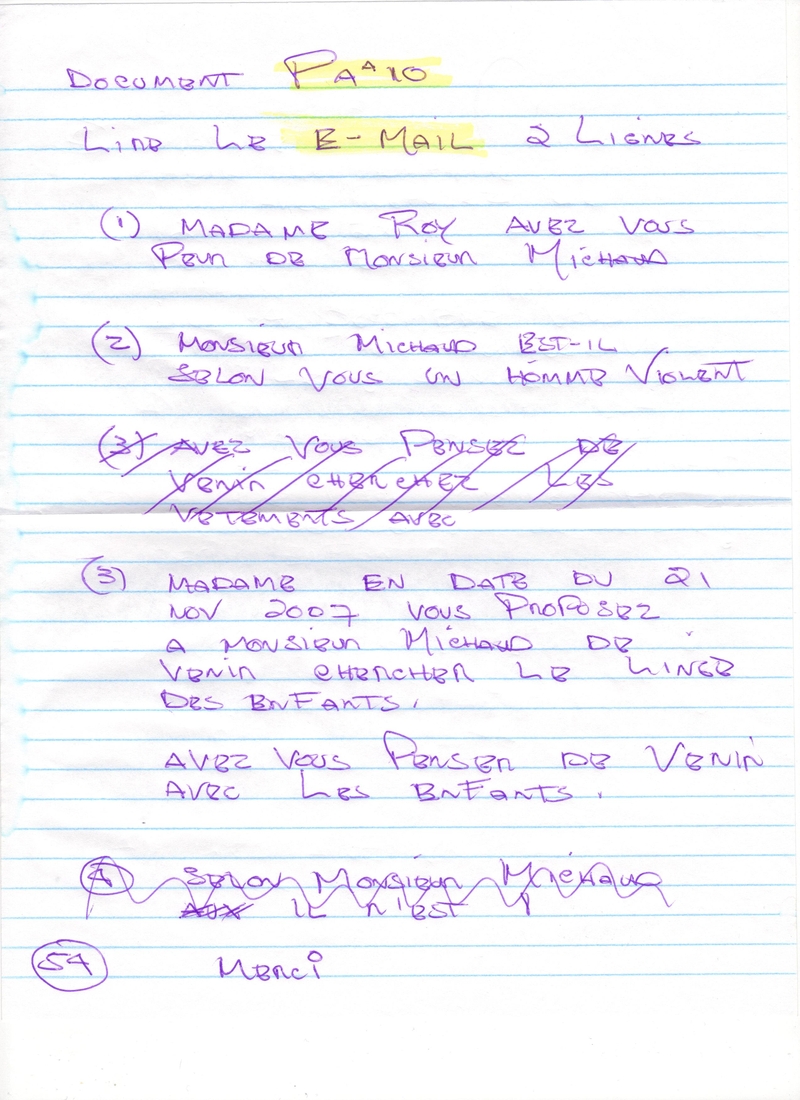 DOCUMENT PAA10
LIRE LE E-MAIL 2 LIGNES
(1) MADAME ROY AVEZ VOUS
PEUR DE MONSIEUR MICHAUD
(2) MONSIEUR MICHAUD EST-IL
SELON VOUS UN HOMME VIOLENT
(3) AVEZ VOUS PENSEZ DE
VENIR CHERCHEZ LES
VETEMENTS AVEC
(3) MADAME EN DATE DU 21
NOV 2007 VOUS PROPOSEZ
A MONSIEUR MICHAUD DE
VENIR CHERCHER LE LINGE
DES ENFANTS.
AVEZ VOUS PENSER DE VENIR
AVEC LES ENFANTS.
(4) SELON MONSIEUR MICHAUD
IL N'EST
54 MERCI